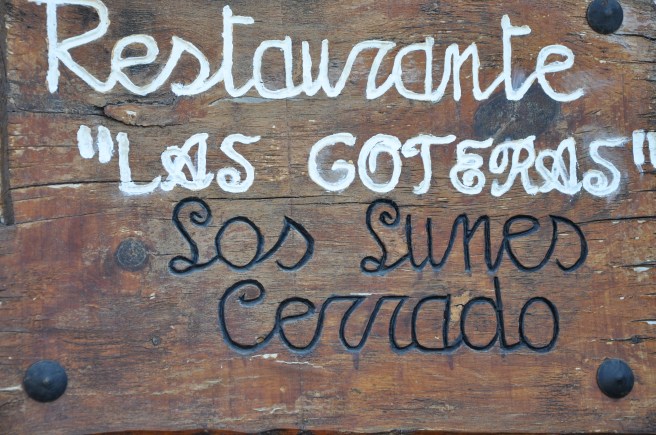 Restaurante
"LAS GOTERAS"
Los Lunes
Cerrado